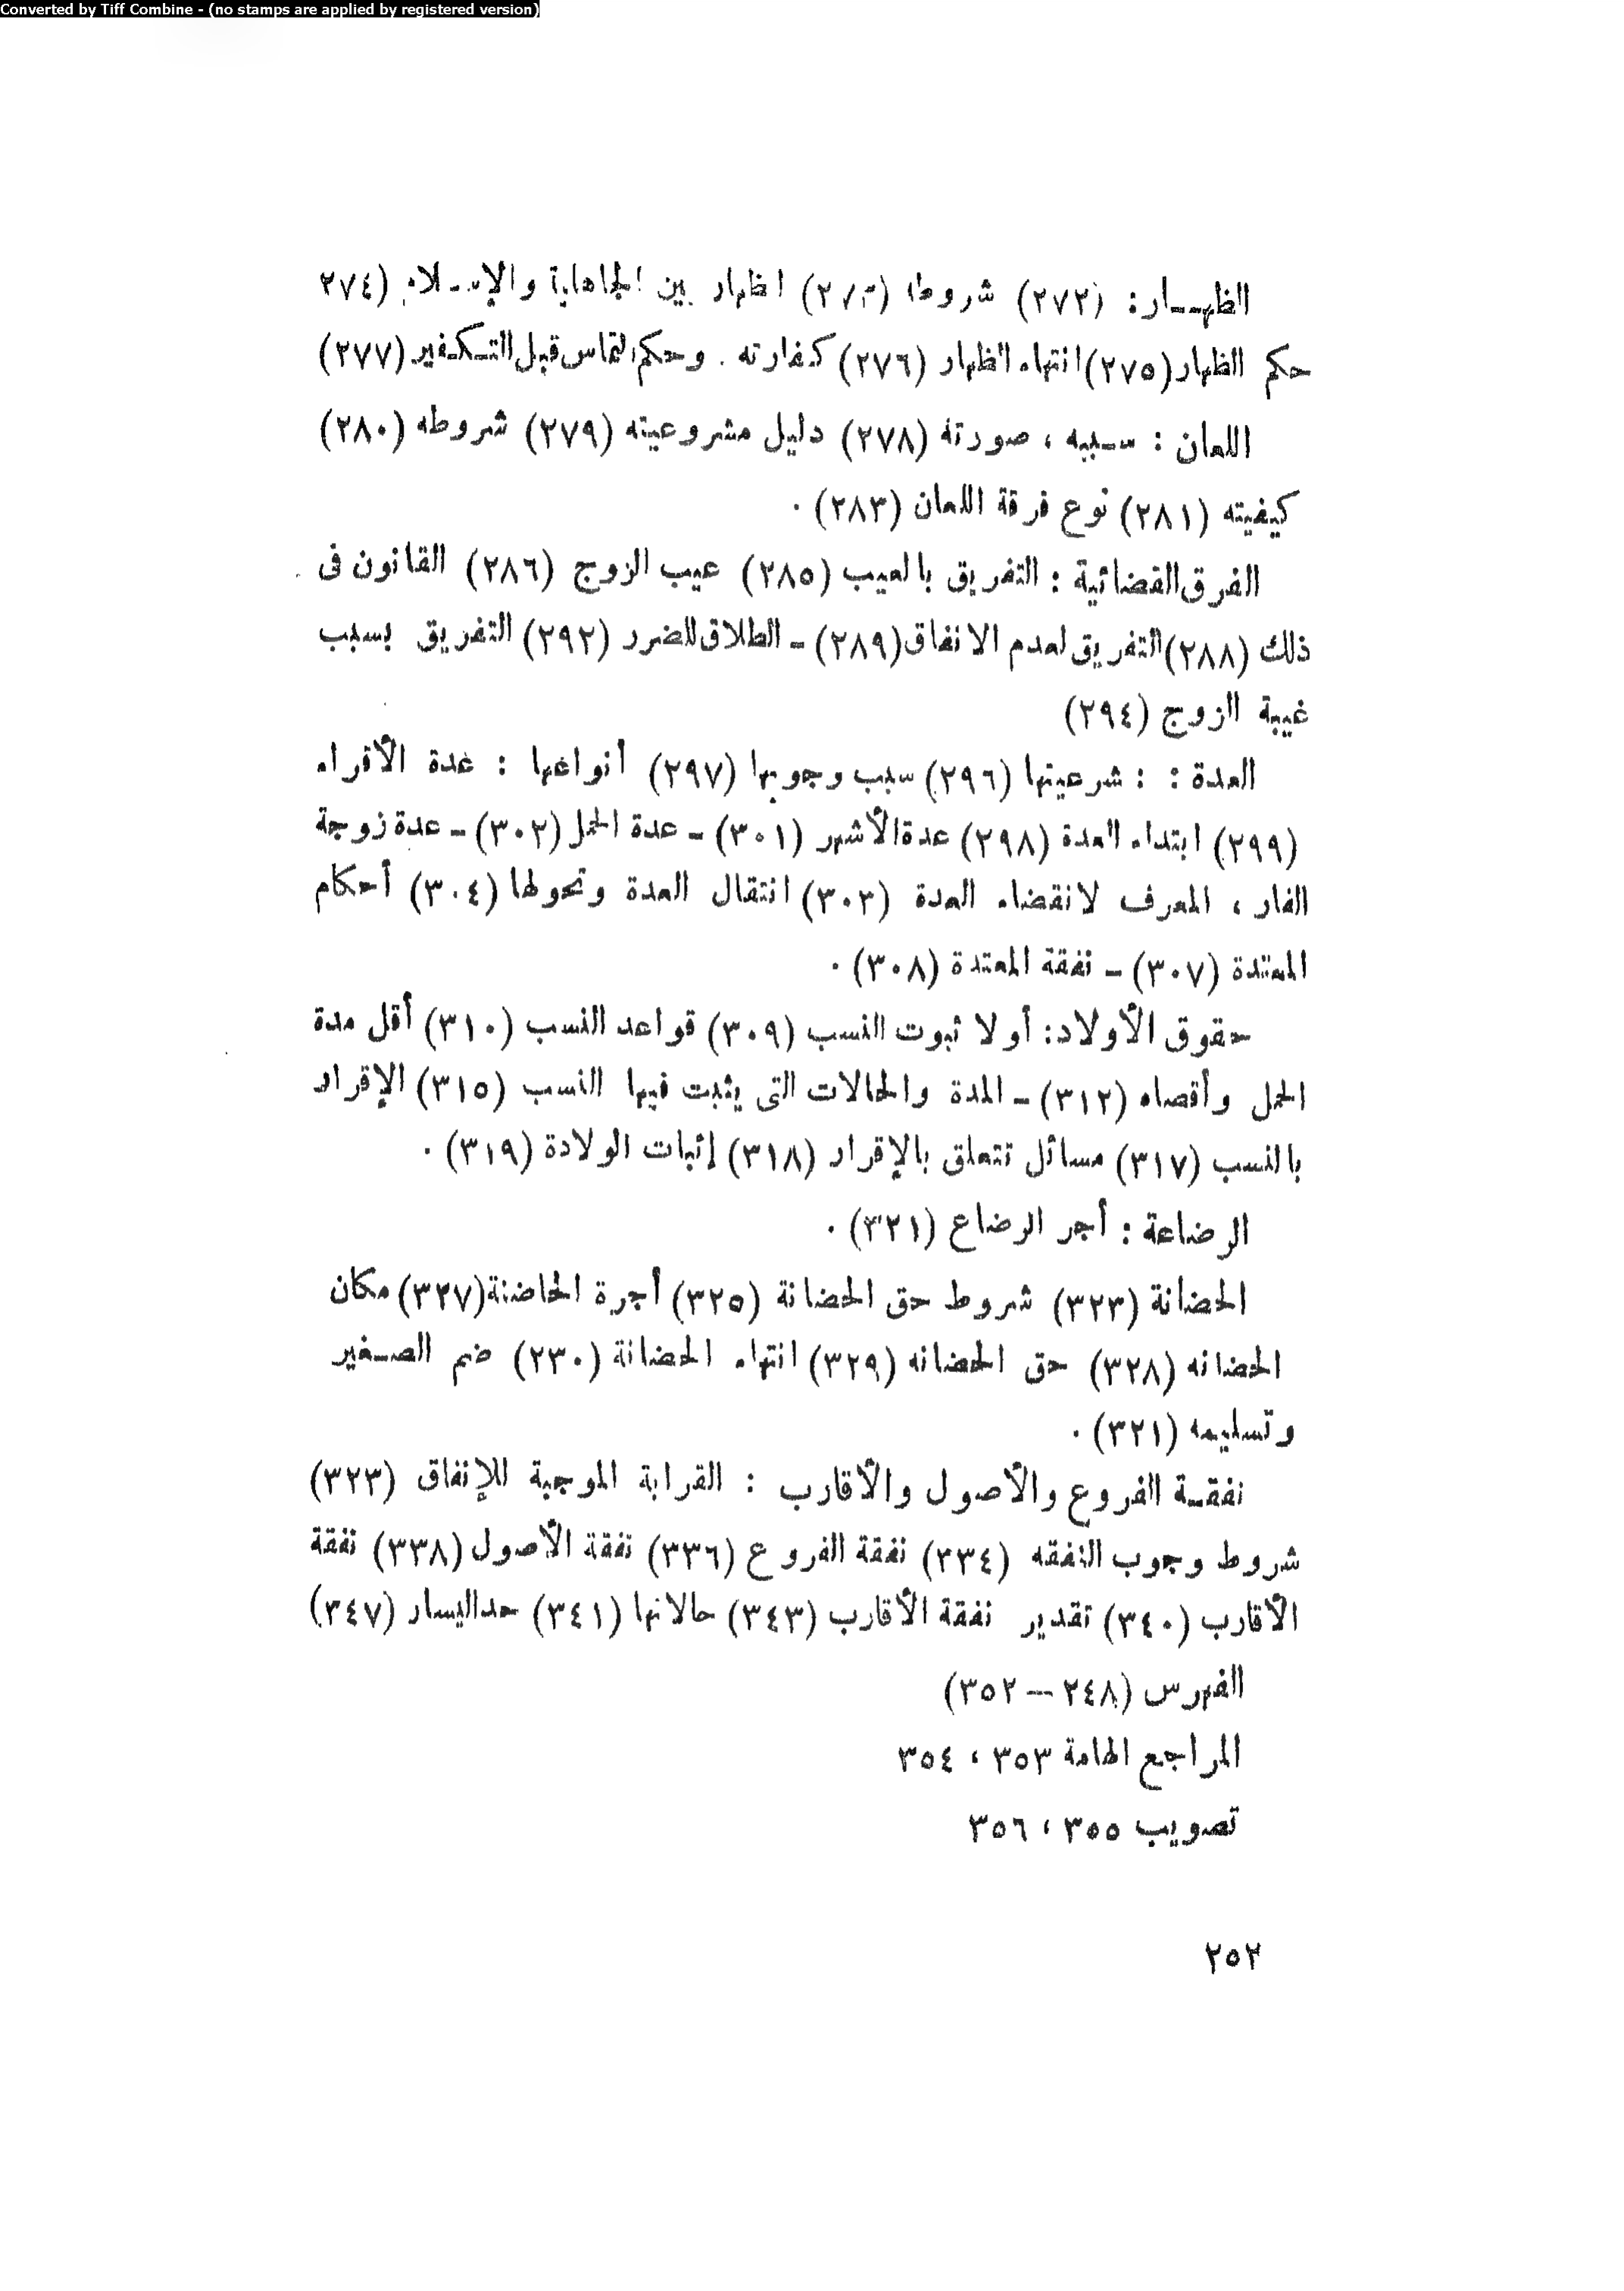 Converted by Tiff Combine - (no stamps are applied by registered version)
الظهـــار: (٢٧٢) شروطه (٢٧٣) الظهار بين الجاهلية والإسـلام (٢٧٤
حكم الظهار (٢٧٥) انتهاء الظهار (٢٧٦) كفارته . وحكم التماس قبل التـكـفير (٢٧٧)
اللعان : سـببه ، صورته (٢٧٨) دليل مشروعيته (٢٧٩) شروطه (٢٨٠)
كيفيته (٢٨١) نوع فرقة اللعان (٢٨٣) .
الفرق القضائية : التفريق بالعيب (٢٨٥) عيب الزوج (٢٨٦) القانون فى
ذلك (٢٨٨) التفريق لعدم الانفاق (٢٨٩) – الطلاق للضرر (٢٩٢) التفريق بسبب
غيبة الزوج (٢٩٤)
العدة : : شرعيتها (٢٩٦) سبب وجوبها (٢٩٧) أنواعها : عدة الأقراء
(٢٩٩) ابتداء العدة (٢٩٨) عدة الأشهر (٣٠١) – عدة الحمل (٣٠٢) – عدة زوجة
الفار ، المعرف لانقضاء العدة (٣٠٣) انتقال العدة وتحولها (٣٠٤) أحكام
المعتدة (٣٠٧) – نفقة المعتدة (٣٠٨) .
حقوق الأولاد: أولا ثبوت النسب (٣٠٩) قواعد النسب (٣١٠) أقل مدة
الحمل وأقصاه (٣١٢) – المدة والحالات التى يثبت فيها النسب (٣١٥) الإقرار
بالنسب (٣١٧) مسائل تتعلق بالإقرار (٣١٨) إثبات الولادة (٣١٩) .
الرضاعة : أجر الرضاع (٣٢١) .
الحضانة (٣٢٣) شروط حق الحضانة (٣٢٥) أجرة الحاضنة (٣٢٧) مكان
الحضانه (٣٢٨) حق الحضانه (٣٢٩) انتهاء الحضانة (٢٣٠) ضم الصـغير
وتسليمه (٣٢١) .
نفقـة الفروع والأصول والأقارب : القرابة الموجبة للإنفاق (٣٢٣)
شروط وجوب النفقه (٢٣٤) نفقة الفروع (٣٣٦) نفقة الأصول (٣٣٨) نفقة
الأقارب (٣٤٠) تقدير نفقة الأقارب (٣٤٣) حالاتها (٣٤١) حد اليسار (٣٤٧)
الفهرس (٢٤٨ – ٣٥٢)
المراجع الهامة ٣٥٣ ، ٣٥٤
تصويب ٣٥٥ ، ٣٥٦
٢٥٢